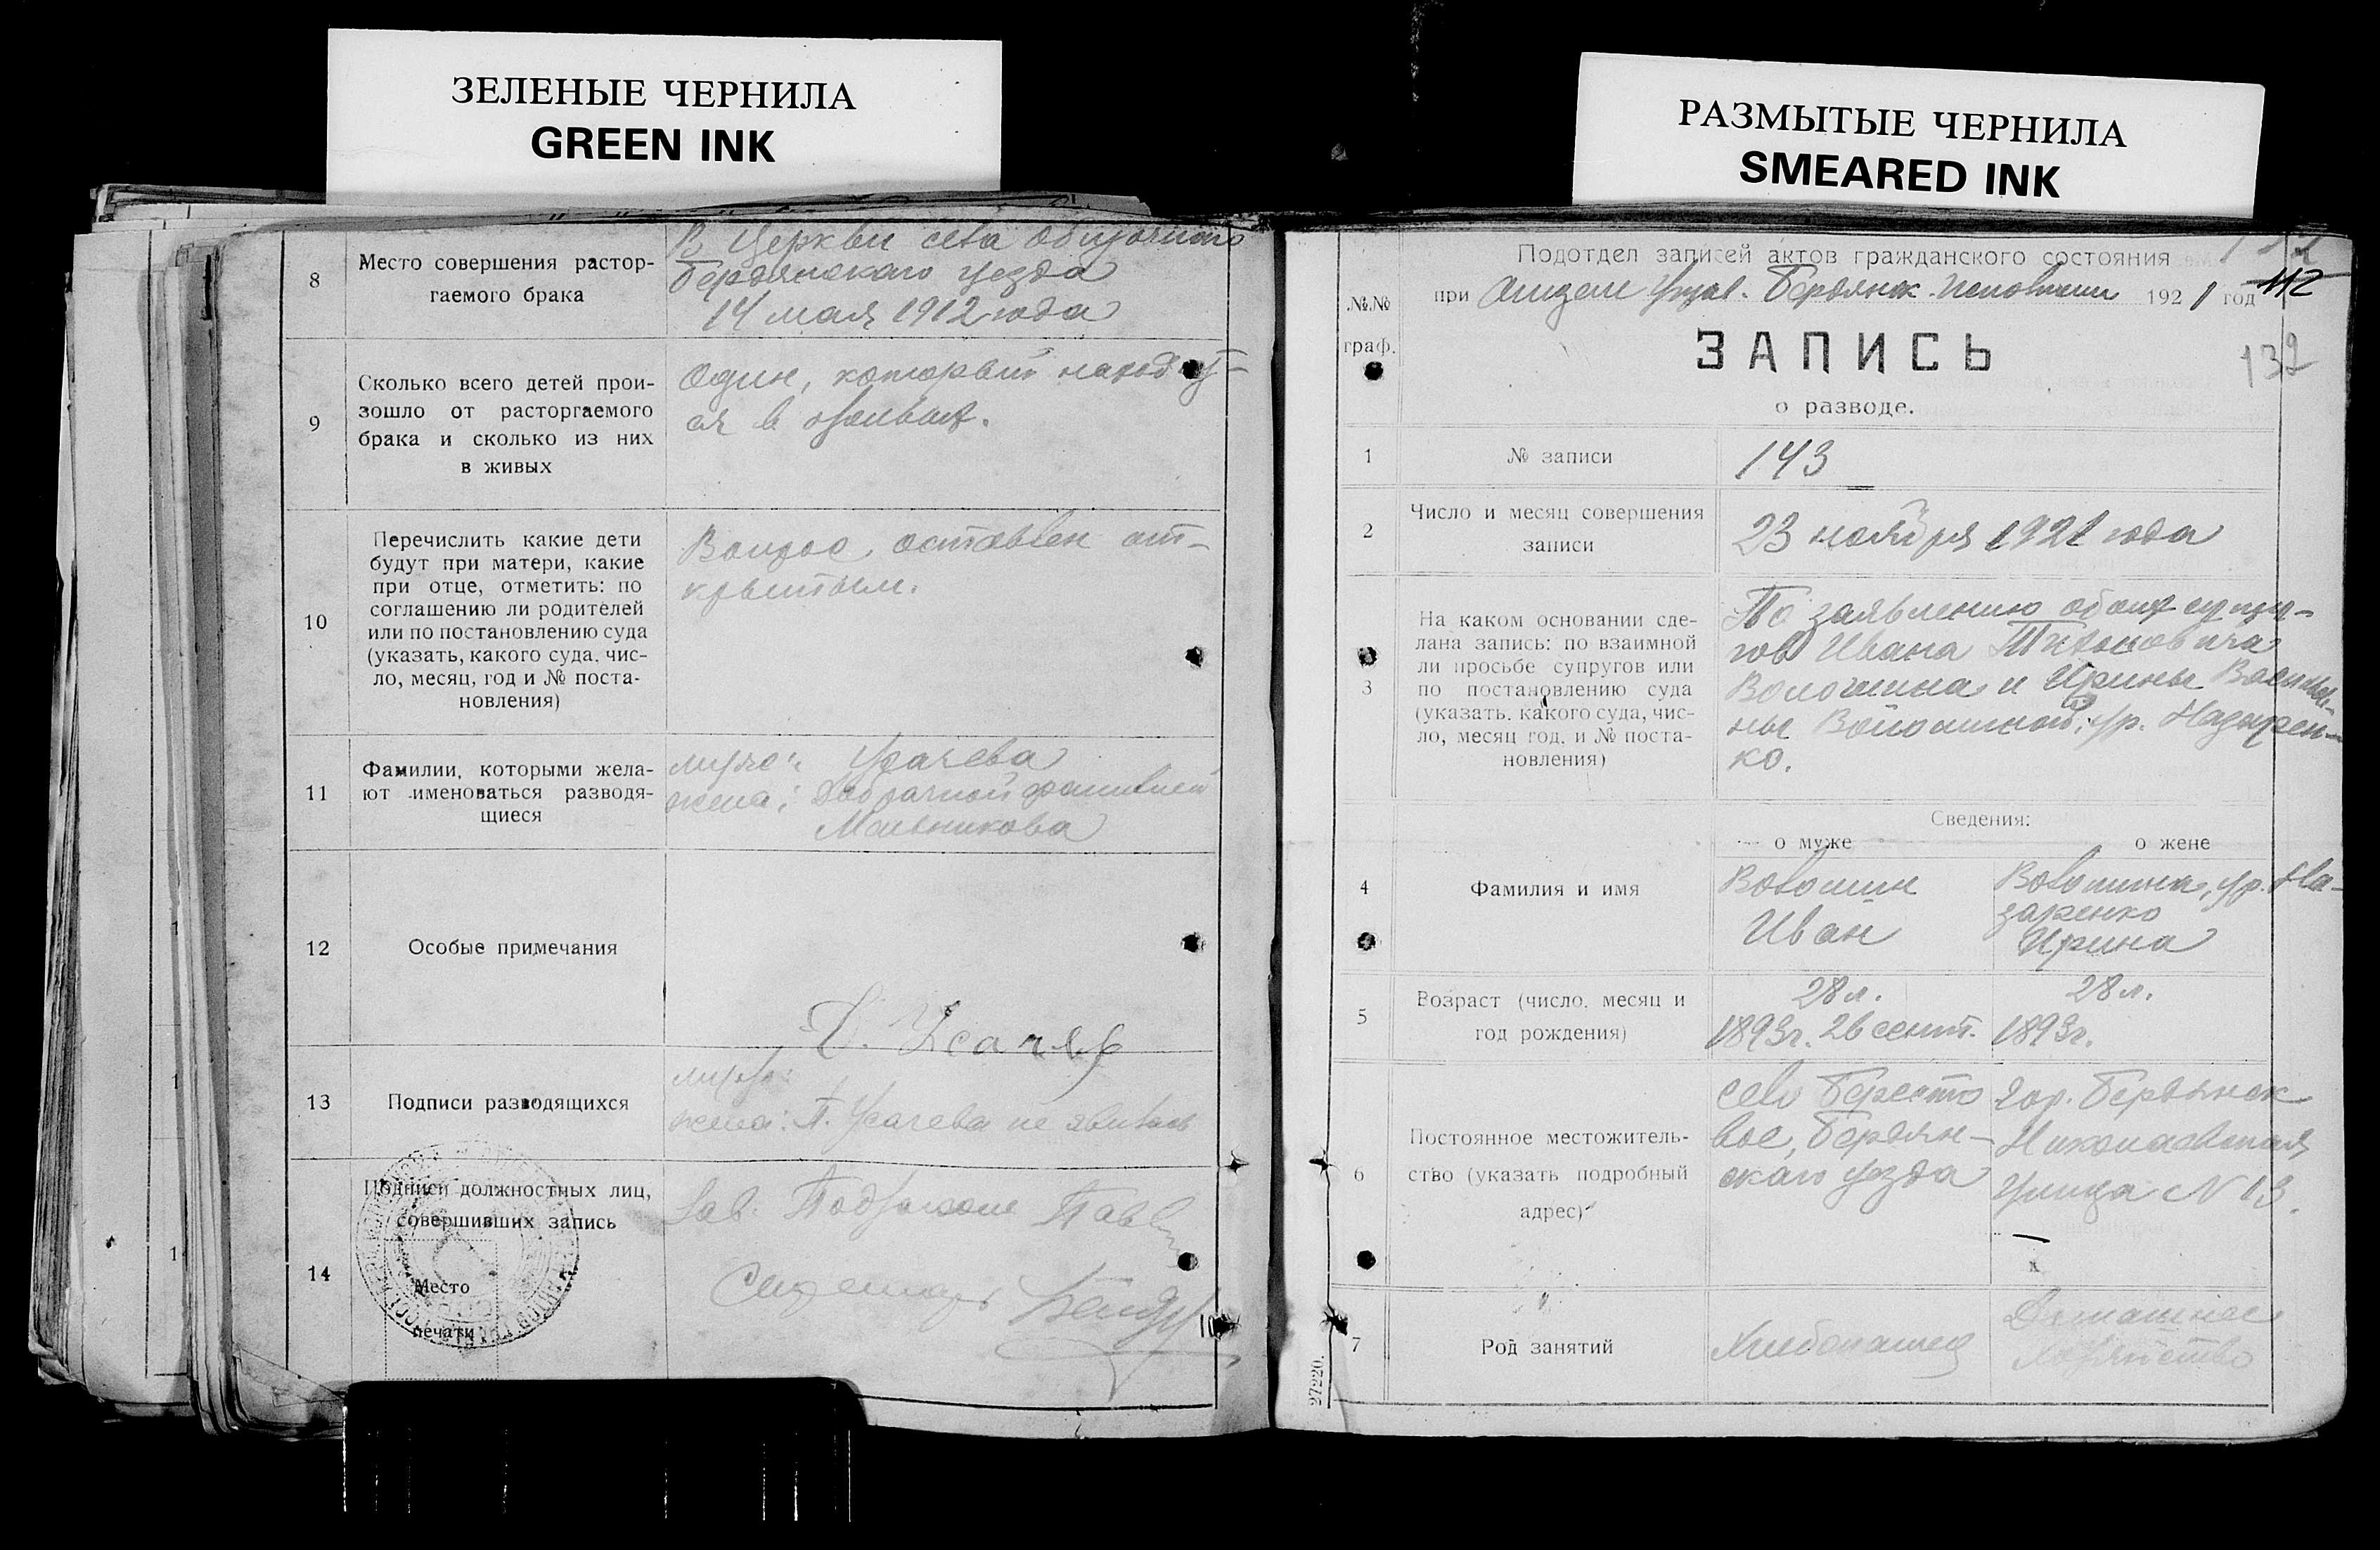 ЗЕЛЕНЫЕ ЧЕРНИЛА
GREEN INK
РАЗМЫТЫЕ ЧЕРНИЛА
SMEARED INK
8
Место совершения растор-
гаемого брака
В церкви села
Бердянского уезда
14 мая 1912 года
9
Сколько всего детей прои-
зошло от расторгаемого
брака и сколько из них
в живых
Один, который находит-
ся в живых.
10
Перечислить какие дети
будут при матери, какие
при отце, отметить: по
соглашению ли родителей
или по постановлению суда
(указать, какого суда, чис-
ло, месяц, год и № поста-
новления)
Вопрос оставлен от-
крытым.
11
Фамилии, которыми жела-
ют именоваться разводя-
щиеся
муж: Усачева
жена: Добрачной фамилией
Мельникова
12
Особые примечания
Усачев
13
Подписи разводящихся
муж:
жена: П. Усачева не явилась
14
Подписи должностных лиц,
совершивших запись
Место
печати
Зав.
Подотдел записей актов гражданского состояния
при Отделе Управ. Бердянск. Исполкома 1921 год
112
132
№№
граф.
ЗАПИСЬ
о разводе.
1
№ записи
143
2
Число и месяц совершения
записи
23 ноября 1921 года
3
На каком основании сде-
лана запись: по взаимной
ли просьбе супругов или
по постановлению суда
(указать, какого суда, чис-
ло, месяц год, и № поста-
новления)
По заявлению обоих супру-
гов Ивана Тихоновича
Волошина и Ирины Василье-
вны Волошиной, ур. Назарен-
ко.
Сведения:
о муже
о жене
4
Фамилия и имя
Волошин
Иван
Волошина, ур. На-
заренко
Ирина
5
Возраст (число, месяц и
год рождения)
28 л.
1893г. 26 сент.
28 л.
1893г.
6
Постоянное местожитель-
ство (указать подробный
адрес)
село Бересто
вое, Бердян-
скаго уезда
гор. Бердянск
Николаевская
улица N 13.
7
Род занятий
Хлебопашец
Домашнее
хозяйство
27220.